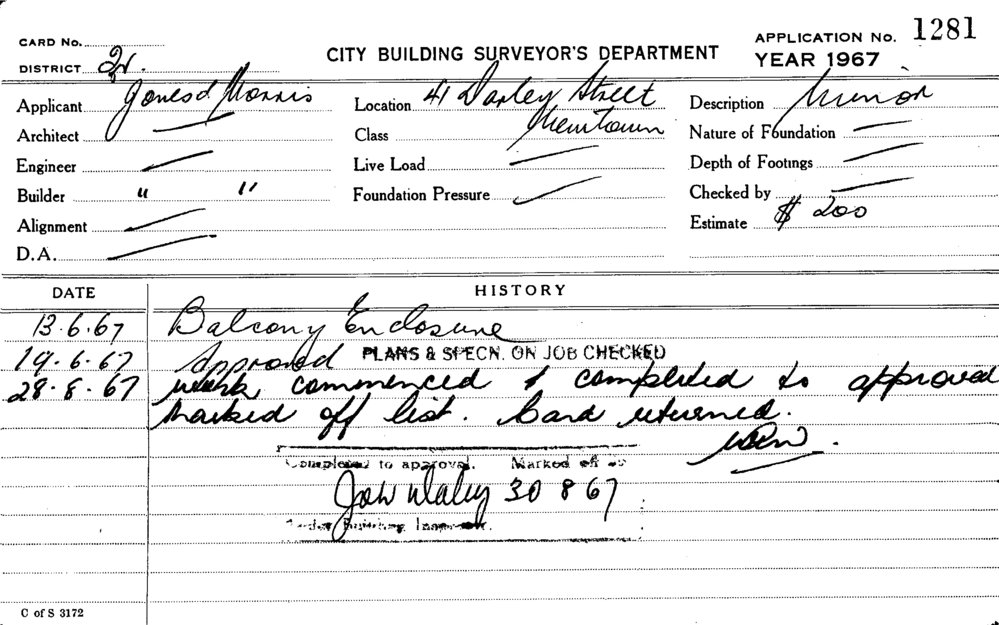 CARD No.
DISTRICT
CITY BUILDING SURVEYOR'S DEPARTMENT
APPLICATION No. 1281
YEAR 1967
Applicant Jones & Morris
Location 41 Darley Street
Newtown
Description Minor
Architect
Class
Nature of Foundation
Engineer
Live Load
Depth of Footings
Builder " "
Foundation Pressure
Checked by
Alignment
Estimate $ 200
D.A.
DATE HISTORY
13.6.67 Balcony Enclosure
19.6.67 Approved PLANS & SPECN. ON JOB CHECKED
28.8.67 work commenced & completed to approved
marked off list. Card returned.
Completed to approval. Marked off
30 8 67
Building Inspector.
C of S 3172